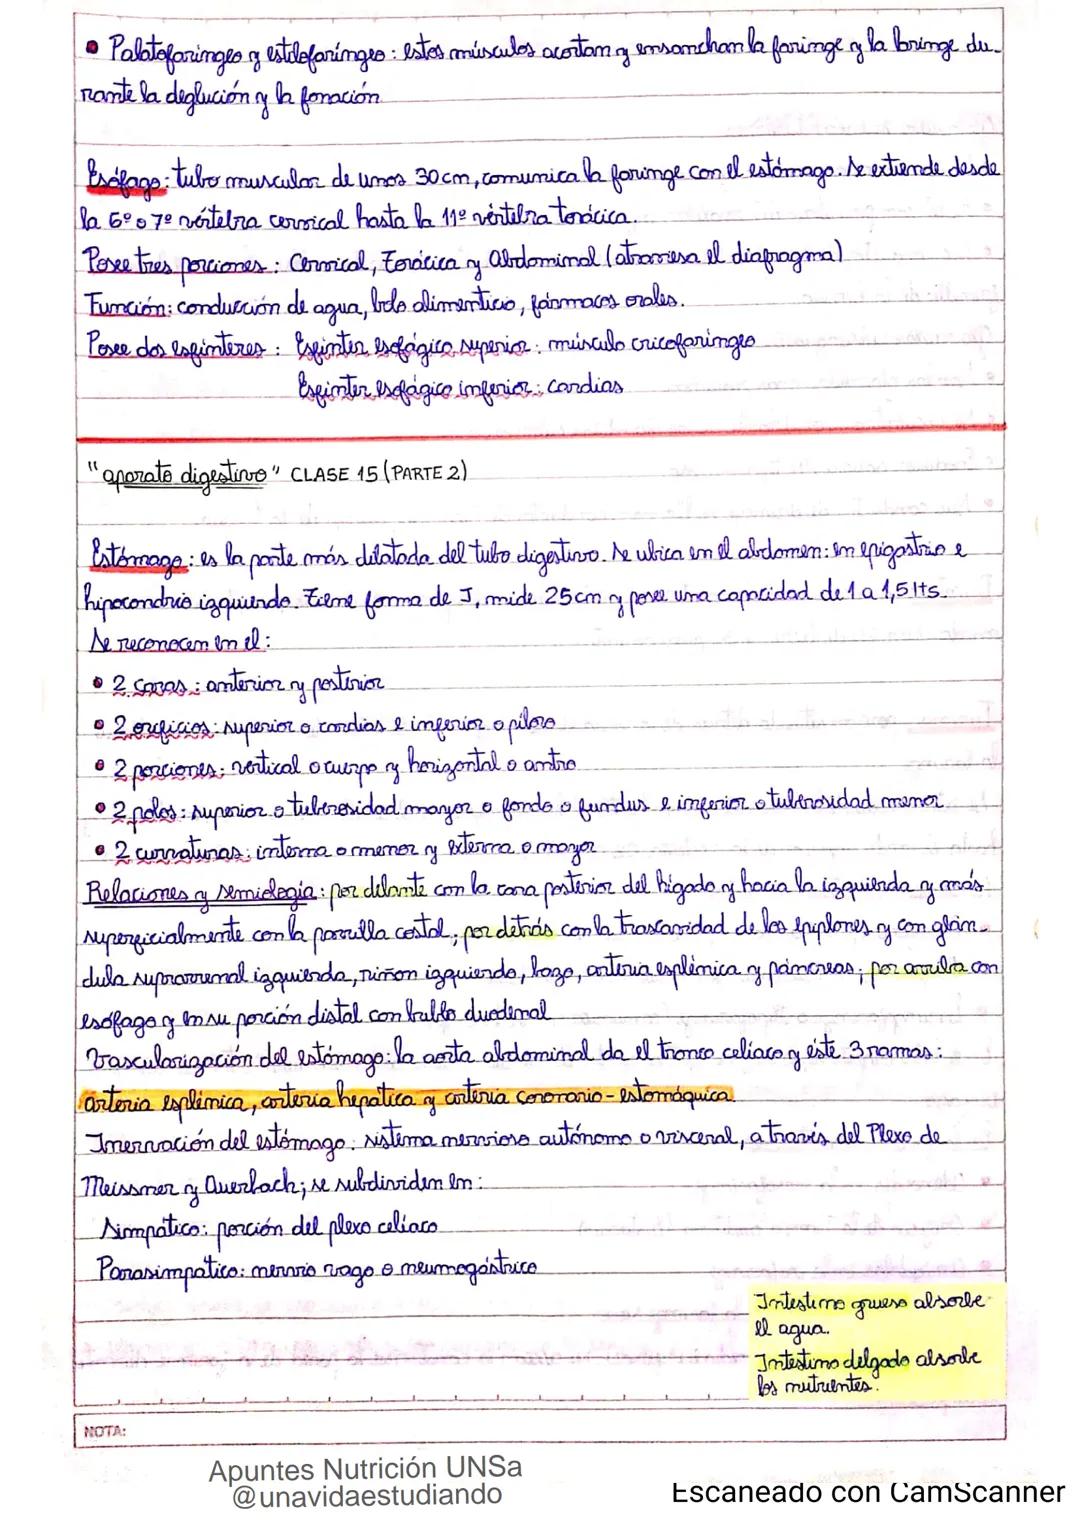 • Palatofaríngeo y estilofaríngeo: estos músculos acortan y ensanchan la faringe y la laringe du-
rante la deglución y la fonación
Esófago: tubo muscular de unos 30cm, comunica la faringe con el estómago. Se extiende desde
la 6º o 7º vértebra cervical hasta la 11º vértebra torácica.
Posee tres porciones: Cervical, Torácica y Abdominal (atraviesa el diafragma)
Función: conducción de agua, bolo alimenticio, fármacos orales.
Posee dos esfínteres: Esfínter esofágico superior: músculo cricofaríngeo
Esfínter esofágico inferior: cardias
"aparato digestivo" CLASE 15 (PARTE 2)
Estómago: es la parte más dilatada del tubo digestivo. Se ubica en el abdomen: en epigastrio e
hipocondrio izquierdo. Tiene forma de J, mide 25cm y posee una capacidad de 1 a 1,5 lts.
Se reconocen en el:
• 2 caras: anterior y posterior
• 2 orificios: superior o cardias e inferior o píloro
• 2 porciones: vertical o cuerpo y horizontal o antro
• 2 polos: superior o tuberosidad mayor o fondo o fundus e inferior o tuberosidad menor
• 2 curvaturas: interna o menor y externa o mayor
Relaciones y semiología: por delante con la cara posterior del hígado y hacia la izquierda y más
superficialmente con la parrilla costal; por detrás con la trascavidad de los epiplones y con glán-
dula suprarrenal izquierda, riñon izquierdo, bazo, arteria esplénica y páncreas; por arriba con
esófago y en su porción distal con bulbo duodenal
Vascularización del estómago: la aorta abdominal da el tronco celíaco y éste 3 ramas:
arteria esplénica, arteria hepática y arteria coronario-estomáquica.
Inervación del estómago: sistema nervioso autónomo o visceral, a través del Plexo de
Meissner y Auerbach; se subdividen en:
Simpático: porción del plexo celíaco
Parasimpático: nervio vago o neumogástrico
Intestino grueso absorbe
el agua.
Intestino delgado absorbe
los nutrientes.
NOTA:
Apuntes Nutrición UNSa
@unavidaestudiando
Escaneado con CamScanner